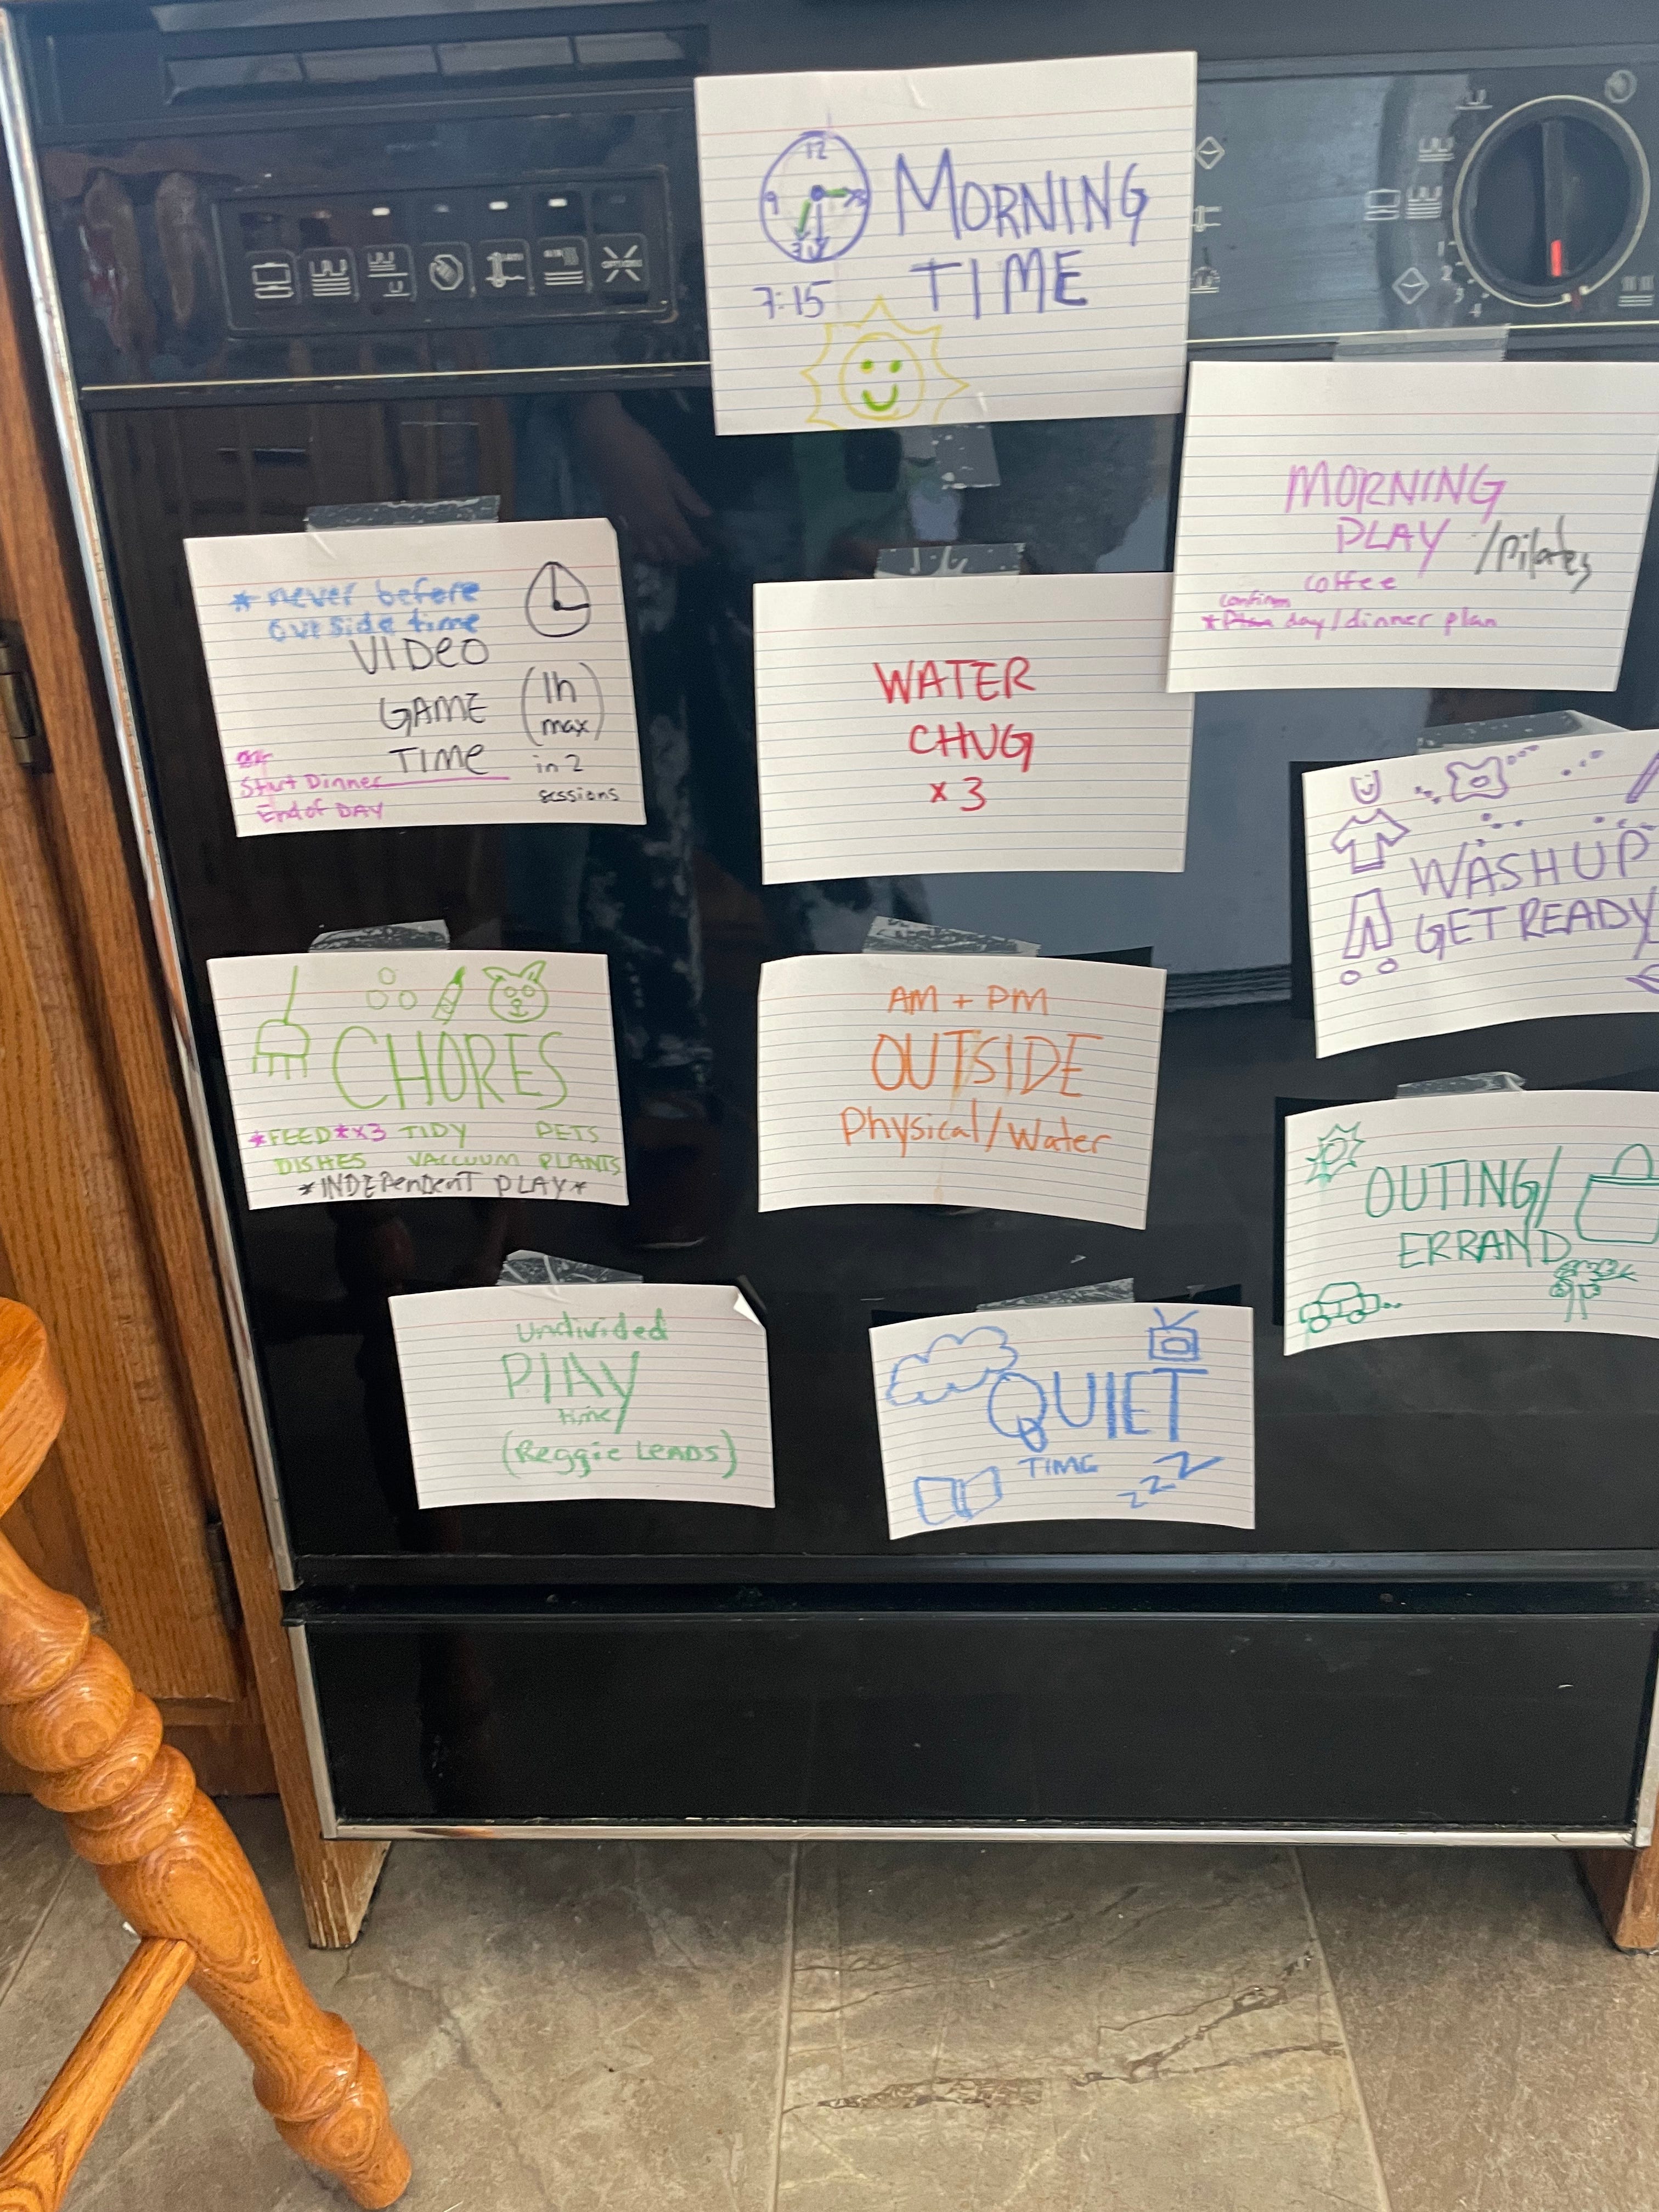 12
9
MORNING
TIME
7:15
MORNING
PLAY /Pilates
coffee
confirm
* day/dinner plan
* never before
outside time
VIDEO
GAME
TIME
(1h
max)
in 2
sessions
Start Dinner
End of DAY
WATER
CHUG
x 3
WASH UP
GET READY
CHORES
*FEED*x3 TIDY PETS
DISHES VACCUUM PLANTS
*INDEPENDENT PLAY*
AM + PM
OUTSIDE
Physical/Water
OUTING/
ERRAND
undivided
PLAY
time
(Reggie LEADS)
QUIET
TIME
zzz
1
2
3
4